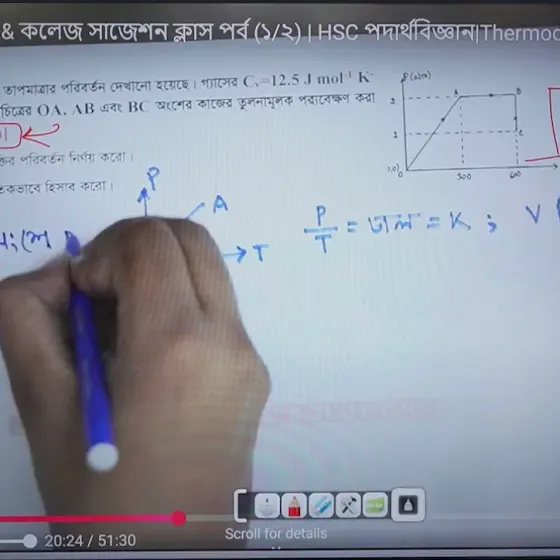 & কলেজ সাজেশন ক্লাস পর্ব (১/২) | HSC পদার্থবিজ্ঞান|Thermoc
তাপমাত্রার পরিবর্তন দেখানো হয়েছে। গ্যাসের Cᵥ=12.5 J mol⁻¹ K⁻
চিত্রের OA, AB এবং BC অংশের কাজের তুলনামূলক পর্যবেক্ষণ করা
পরিবর্তন নির্ণয় করো।
হিসাব করো।
P(atm)
A B
2
1
C
0
300 600
P
A
T
P/T = ঢাল = K ; V
20:24 / 51:30
Scroll for details